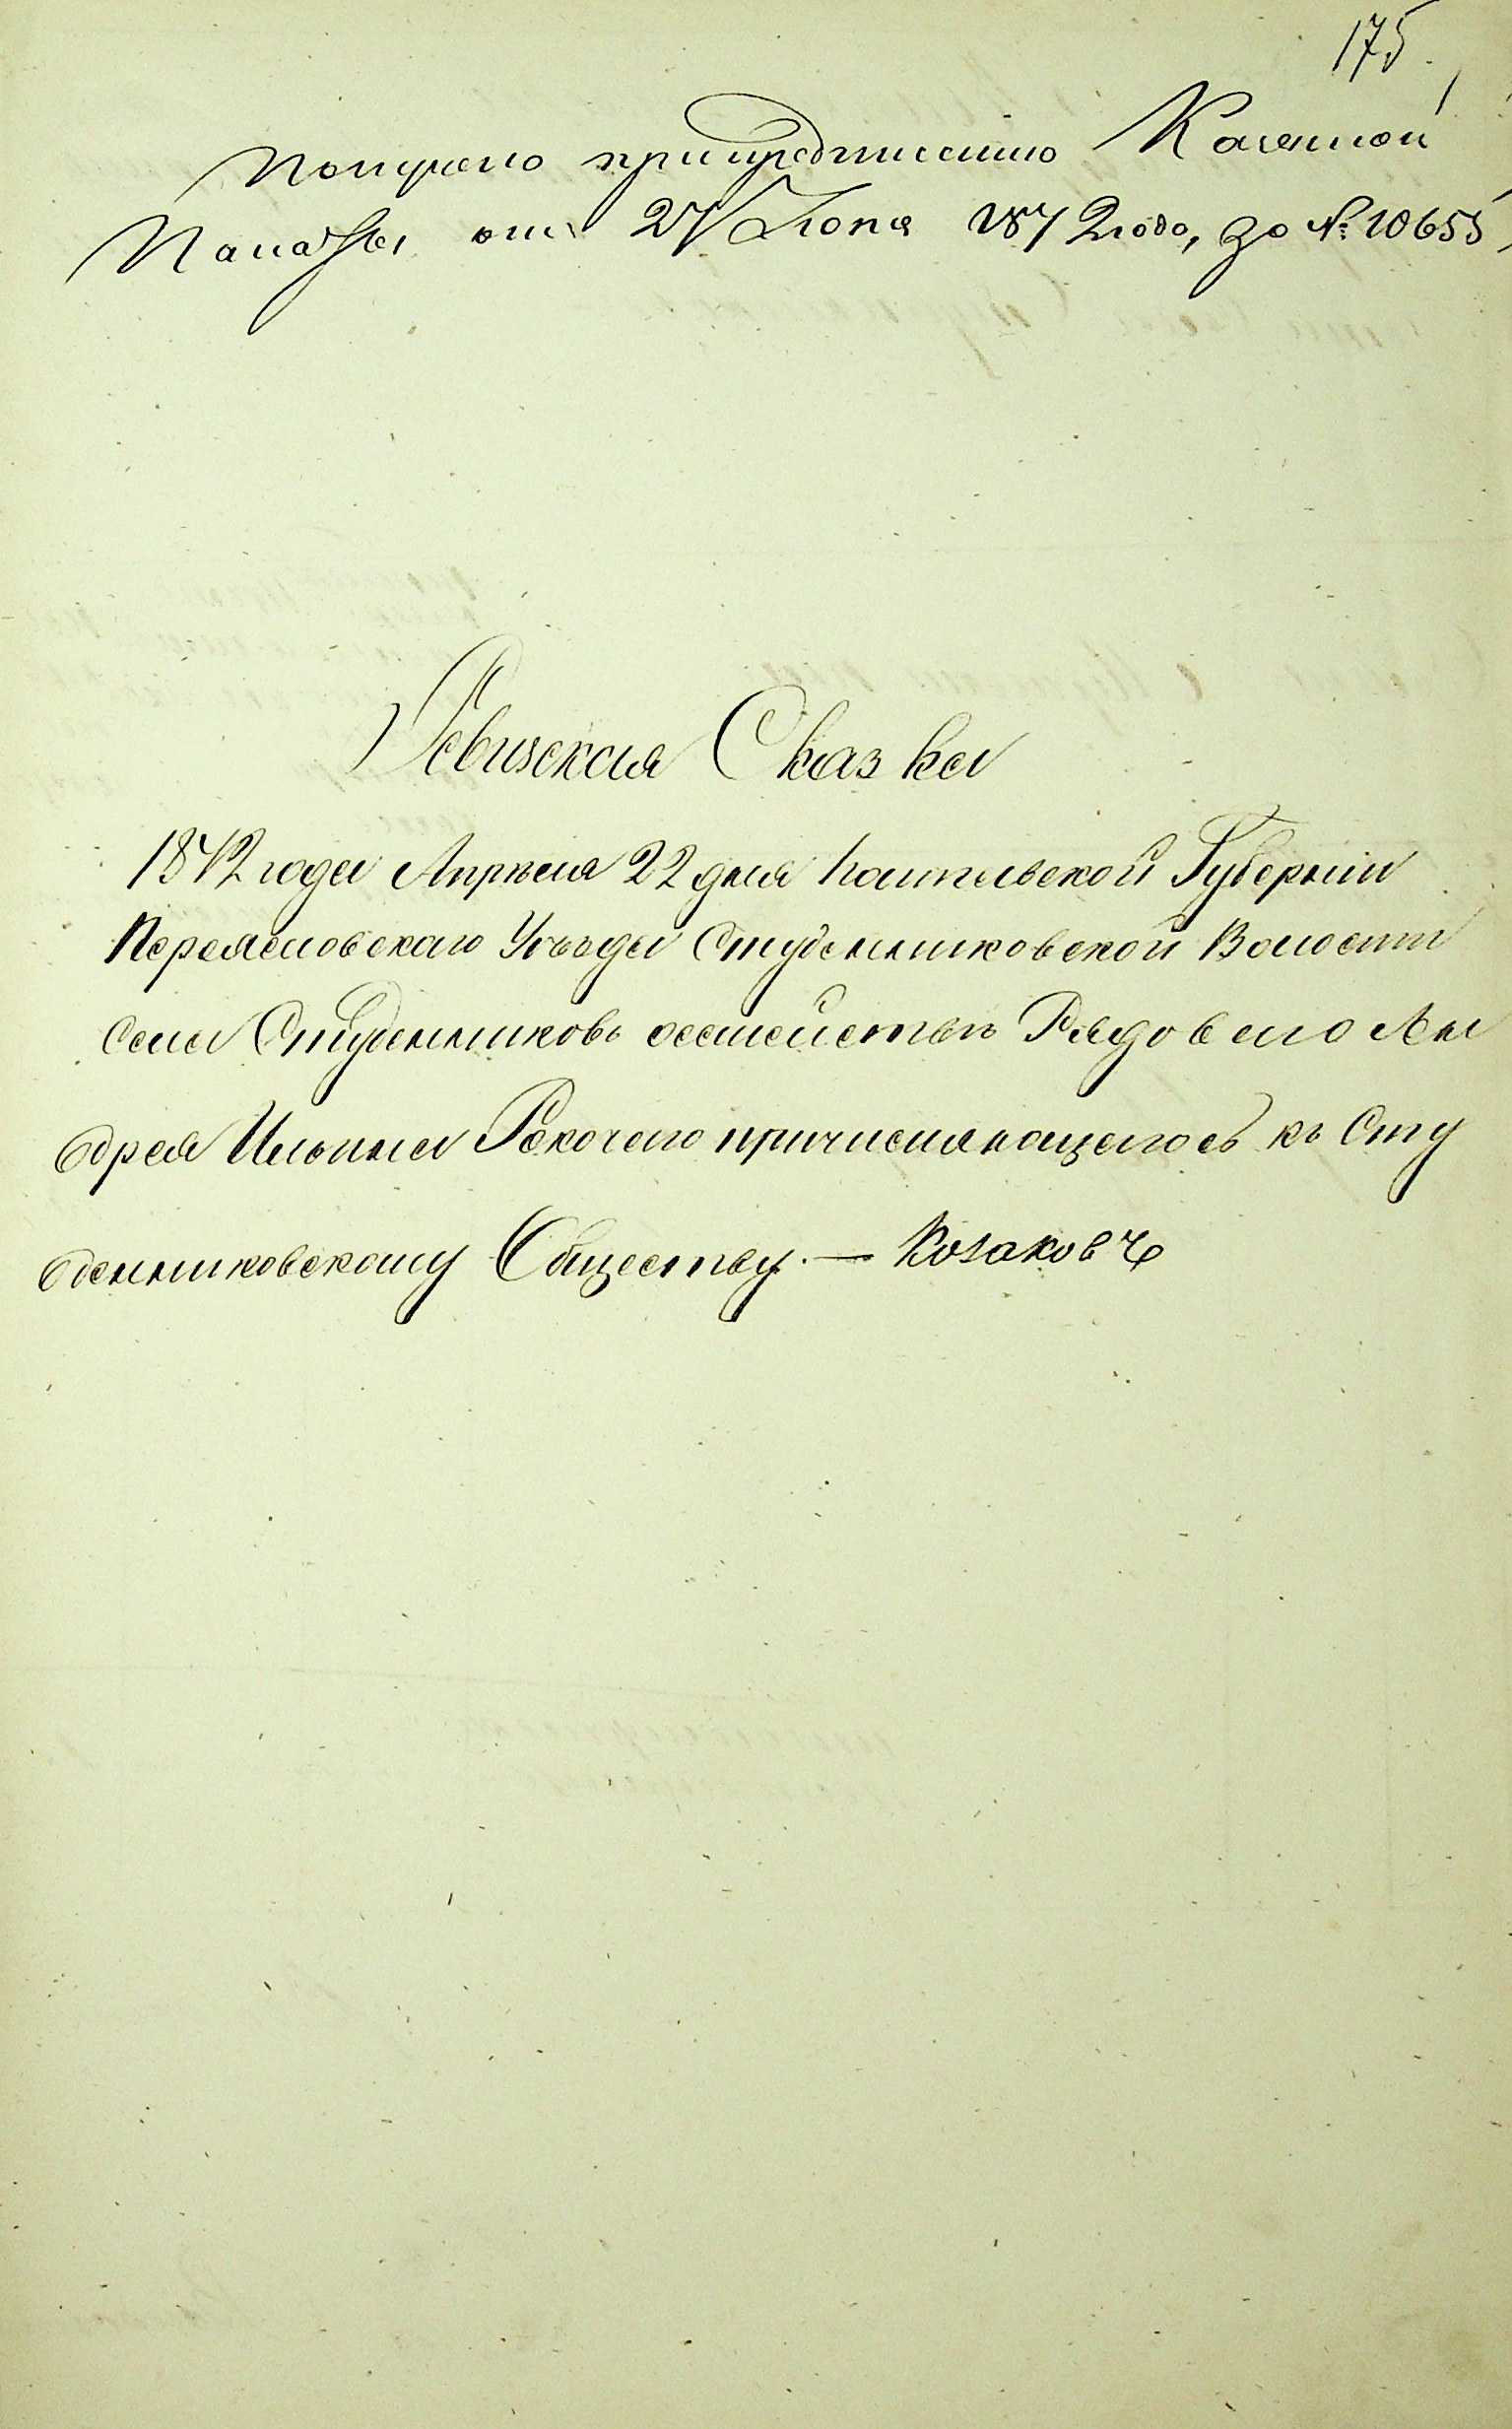 175.
Получено припредписанію Казенной
Палаты отъ 27 Іюня 1872 года, за № 10655
Ревизская Сказка
1872 года Апрѣля 22 дня Полтавской Губерніи
Переяславскаго Уѣзда Студенниковской Волости
села Студенниковъ осемействѣ Рядоваго Ан
дрея Ильина Рокочаго причисляющагося къ Сту
денниковскому Обществу. — Козаковъ